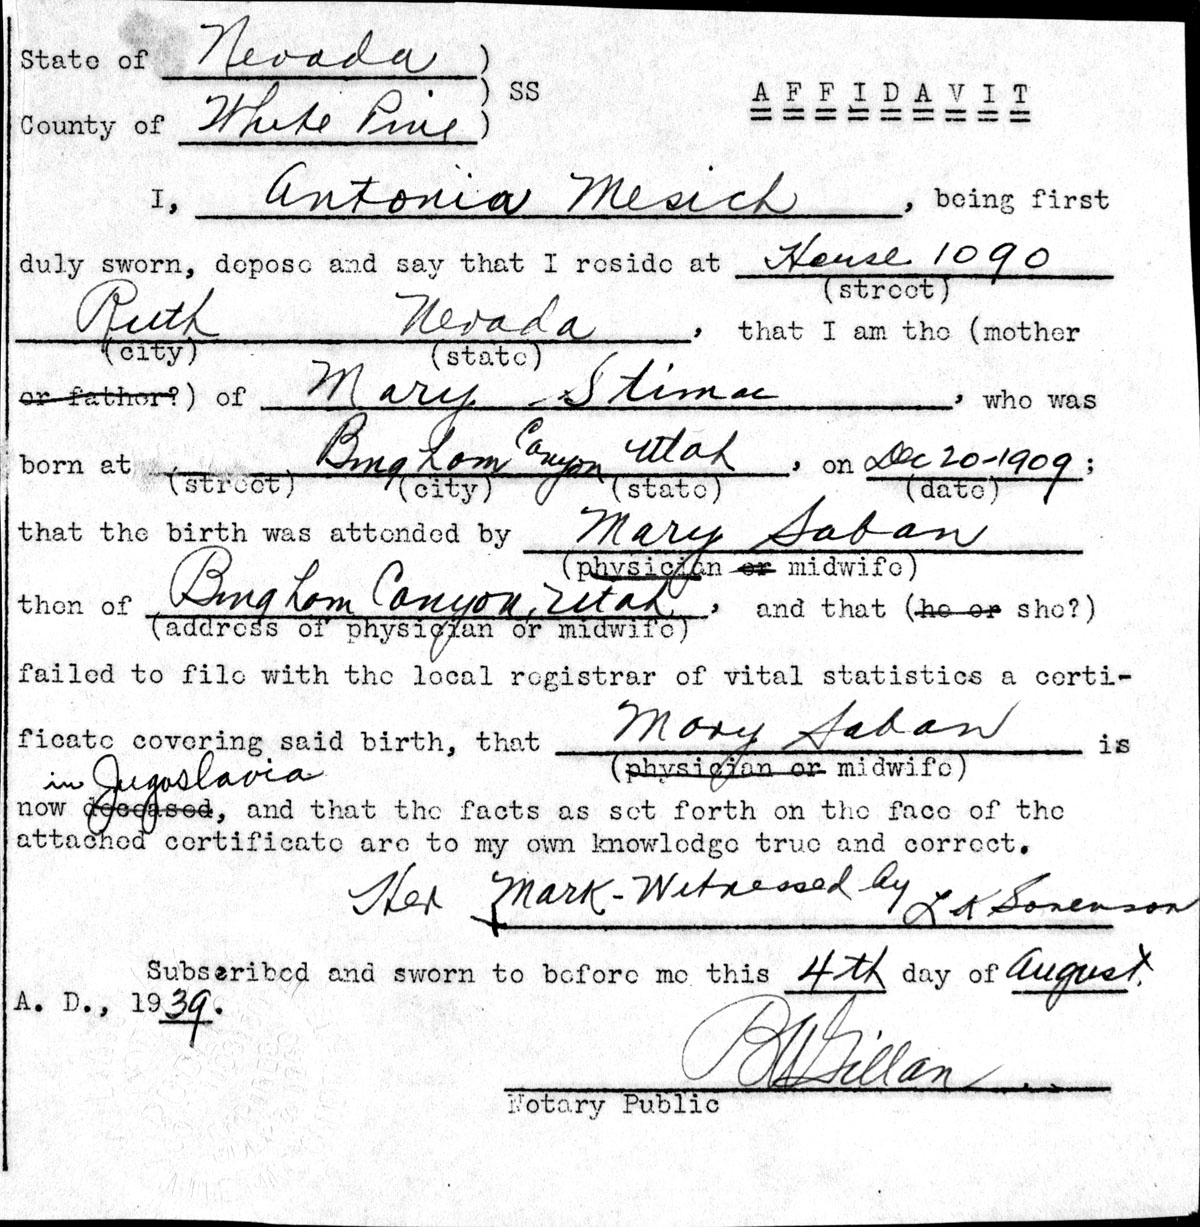 State of Nevada )
) SS AFFIDAVIT
County of White Pine )
I, Antonia Mesich, being first
duly sworn, depose and say that I reside at House 1090
(street)
Ruth Nevada, that I am the (mother
(city) (state)
or father?) of Mary Stimac, who was
born at Bingham Canyon Utah, on Dec 20-1909;
(street) (city) (state) (date)
that the birth was attended by Mary Saban
(physician or midwife)
then of Bingham Canyon, Utah, and that (he or she?)
(address of physician or midwife)
failed to file with the local registrar of vital statistics a certi-
ficate covering said birth, that Mary Saban is
(physician or midwife)
in Jugoslavia
now deceased, and that the facts as set forth on the face of the
attached certificate are to my own knowledge true and correct.
Her Mark - Witnessed by L K Sorenson
Subscribed and sworn to before me this 4th day of August.
A. D., 1939.
Gillan
Notary Public